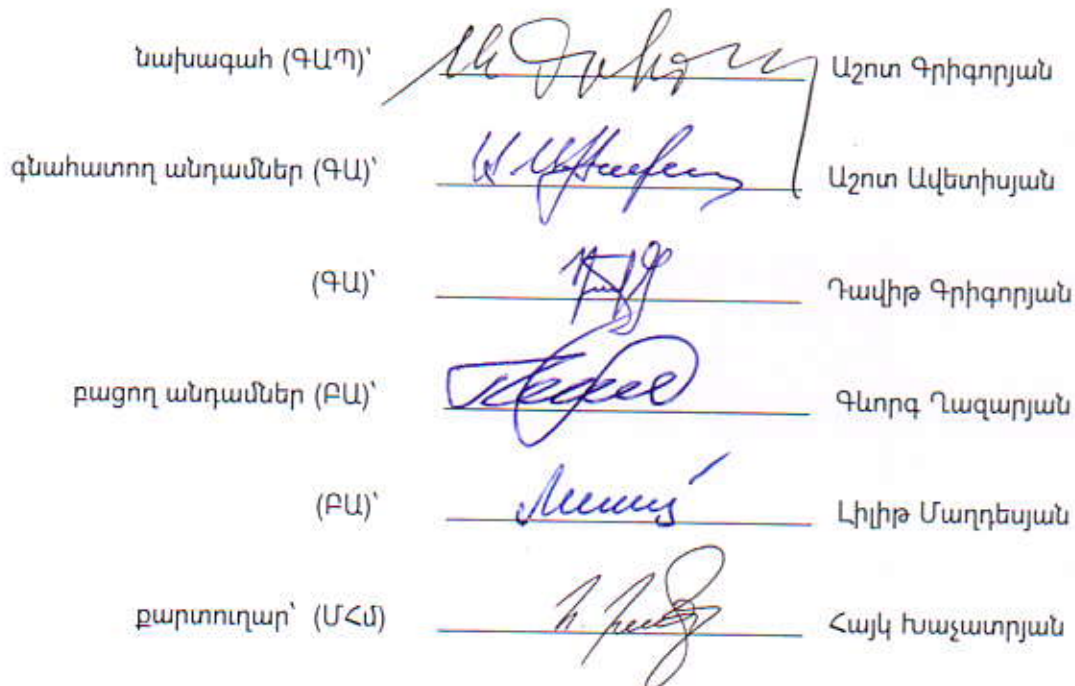 նախագահ (ԳԱՊ)՝ Աշոտ Գրիգորյան
գնահատող անդամներ (ԳԱ)՝ Աշոտ Ավետիսյան
(ԳԱ)՝ Դավիթ Գրիգորյան
բացող անդամներ (ԲԱ)՝ Գևորգ Ղազարյան
(ԲԱ)՝ Լիլիթ Մաղդեսյան
քարտուղար՝ (ՄՀմ) Հայկ Խաչատրյան